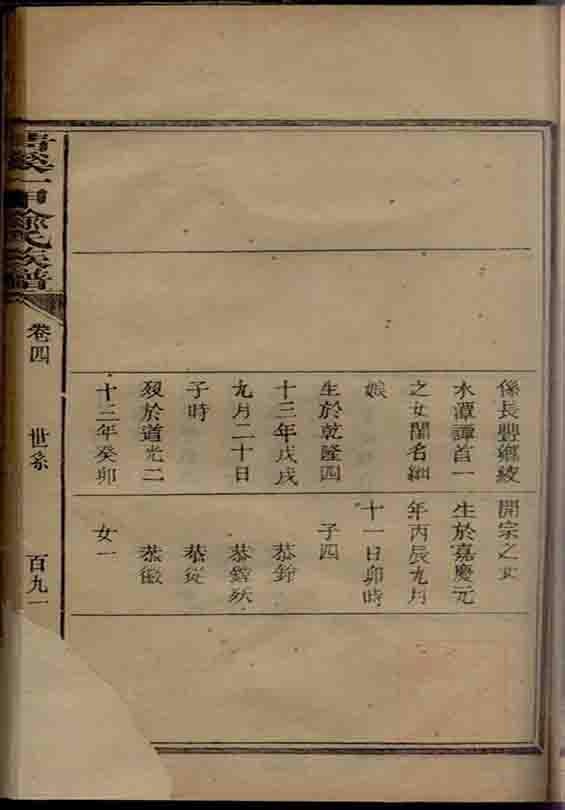 係長豐鄉綾
水潭譚首一
之女閨名細
娘
生於乾隆四
十三年戊戌
九月二十日
子時
歿於道光二
十三年癸卯
開宗之女
生於嘉慶元
年丙辰九月
十一日卯時
子四
恭銓
恭鏜殀
恭從
恭徽
女一
溪一甲徐氏族譜
卷四
世系
百九一